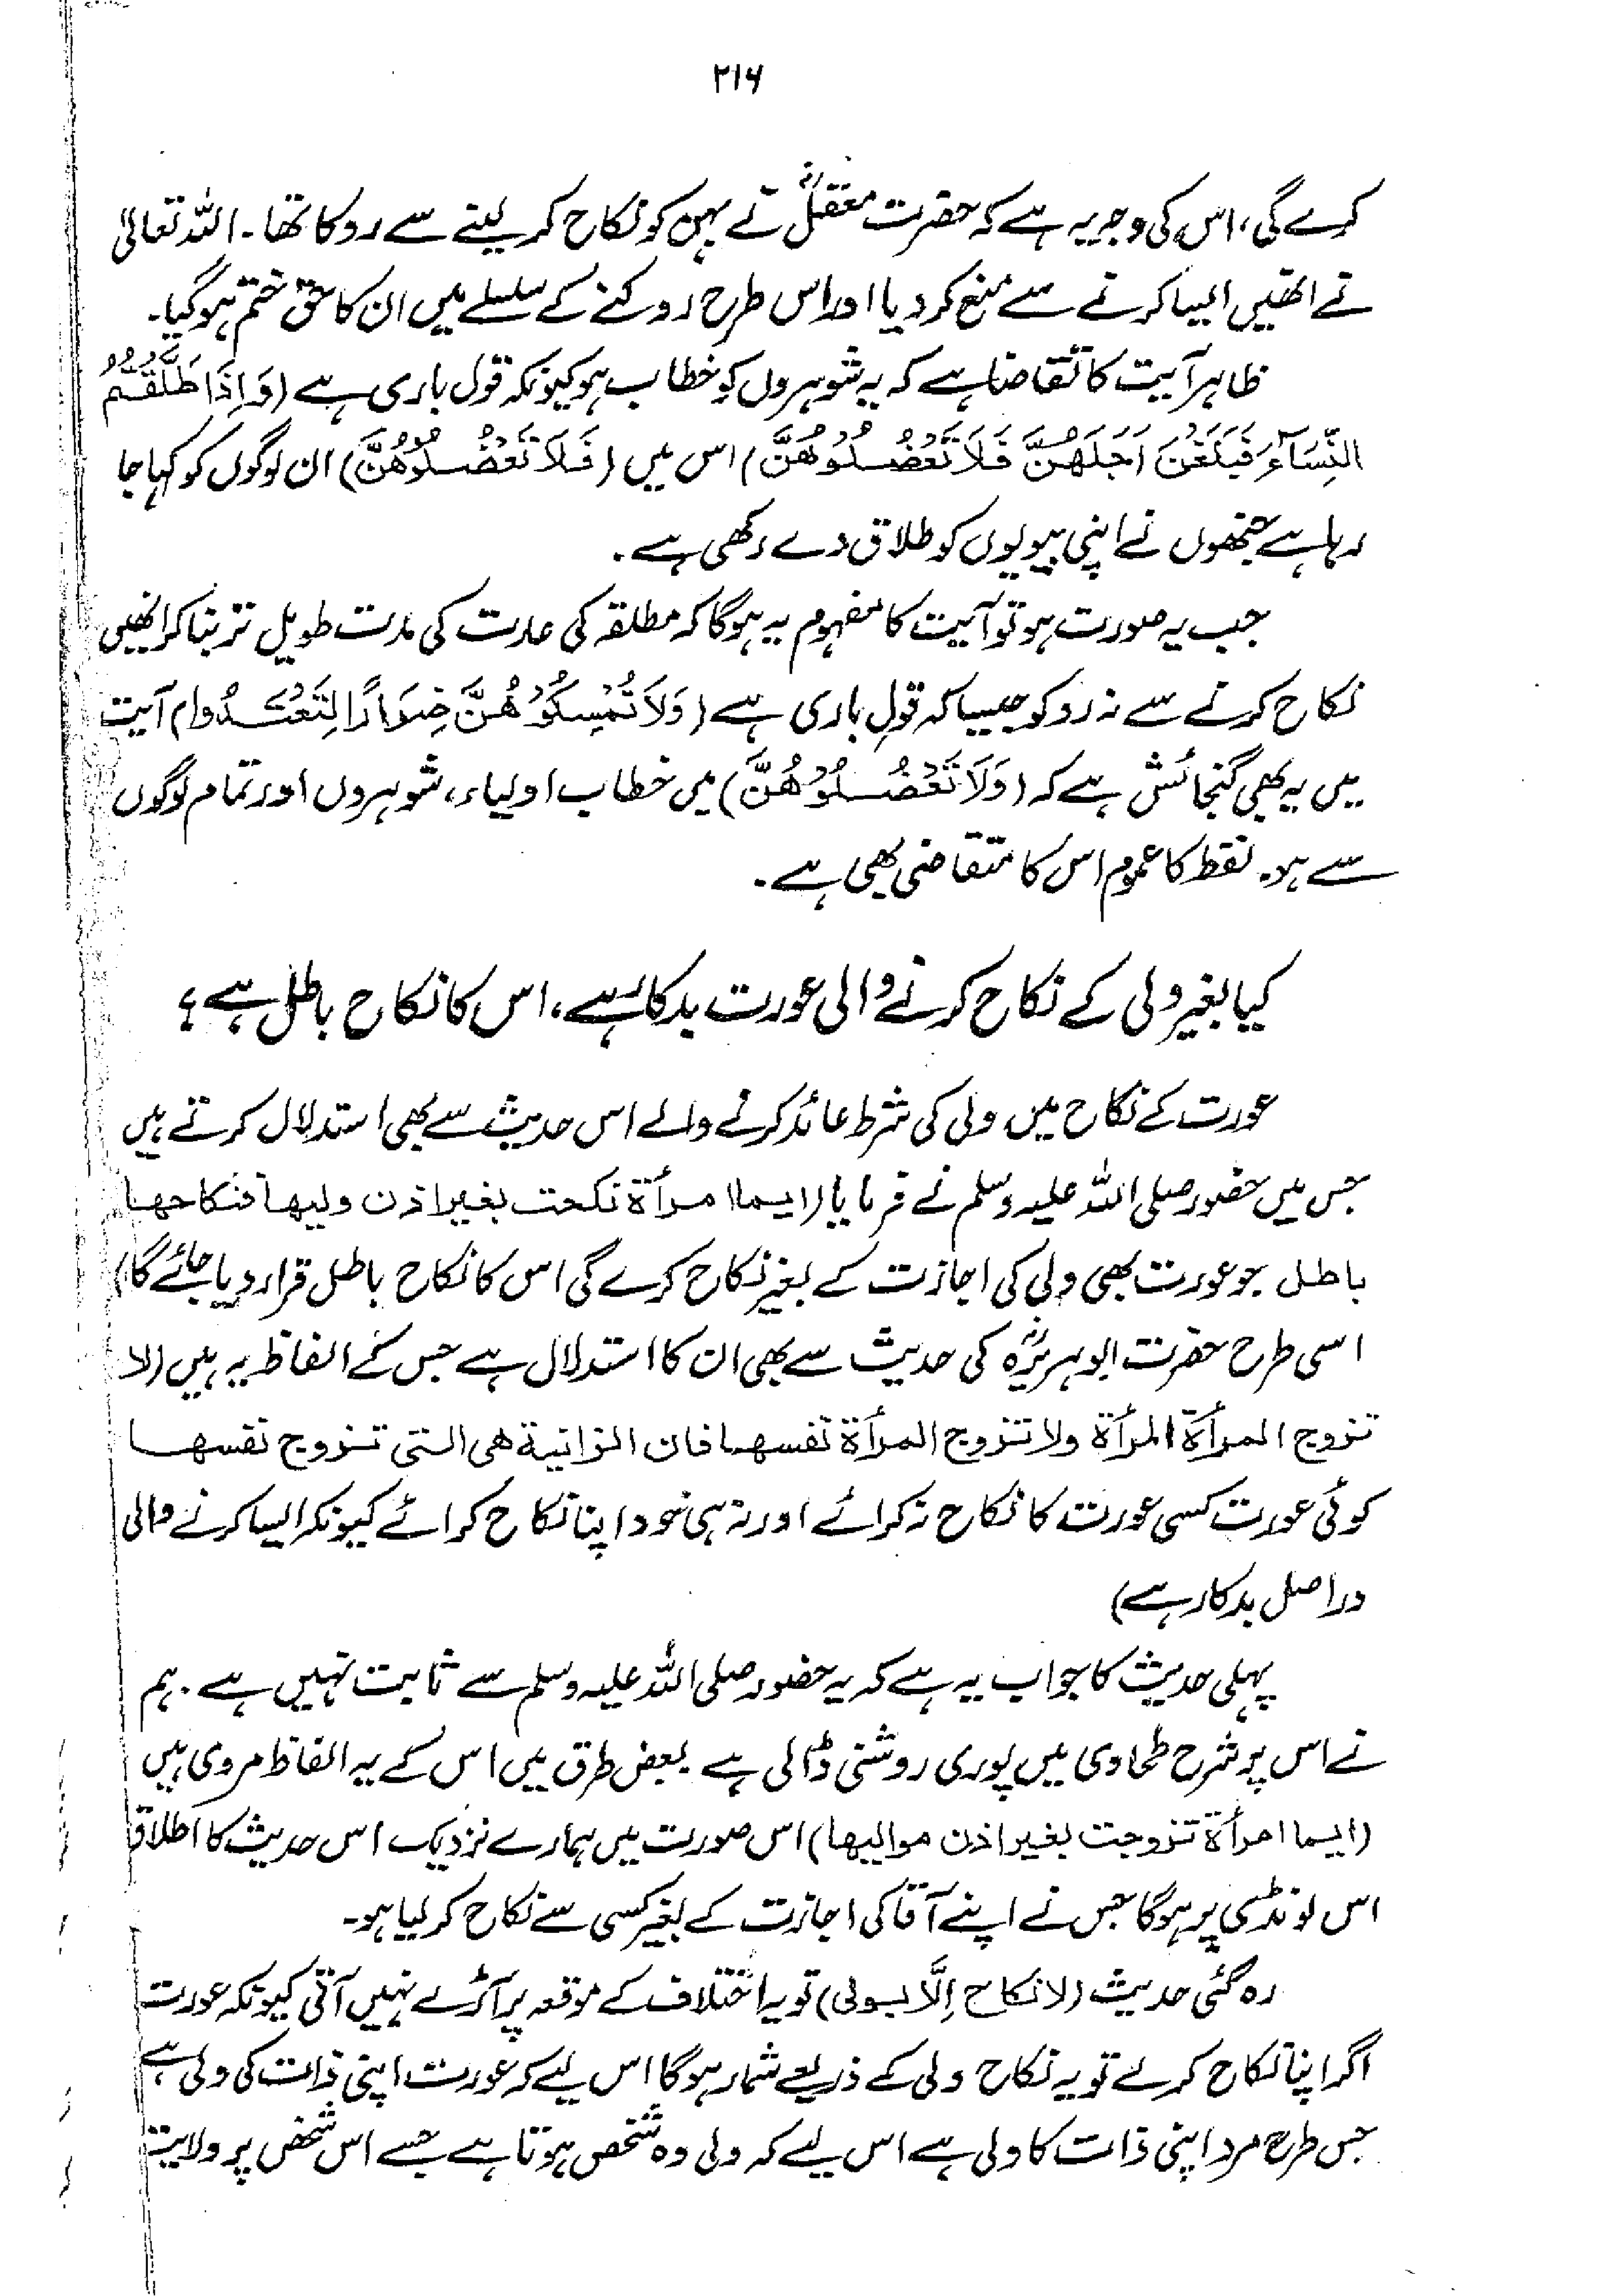 ۲۱۶
کرے گی، اس کی وجہ یہ ہے کہ حضرت معقلؓ نے بہن کو نکاح کر لینے سے روکا تھا۔ اللہ تعالیٰ
نے انھیں ایسا کرنے سے منع کر دیا اور اس طرح روکنے کے سلسلے میں ان کا حق ختم ہو گیا۔
ظاہر آیت کا تقاضا ہے کہ یہ شوہروں کو خطاب ہو کیونکہ قول باری ہے (وَاِذَا طَلَّقْتُمُ
النِّسَآءَ فَبَلَغْنَ اَجَلَهُنَّ فَلَا تَعْضُلُوْهُنَّ) اس میں (فَلَا تَعْضُلُوْهُنَّ) ان لوگوں کو کہا جا
رہا ہے جنھوں نے اپنی بیویوں کو طلاق دے رکھی ہے۔
جب یہ صورت ہو تو آیت کا مفہوم یہ ہوگا کہ مطلقہ کی عدت کی مدت طویل تر بنا کر انھیں
نکاح کرنے سے نہ روکو جیسا کہ قولِ باری ہے (وَلَا تُمْسِكُوْهُنَّ ضِرَارًا لِّتَعْتَدُوا) آیت
میں یہ بھی گنجائش ہے کہ (وَلَا تَعْضُلُوْهُنَّ) میں خطاب اولیاء، شوہروں اور تمام لوگوں
سے ہو۔ لفظ کا عموم اس کا متقاضی بھی ہے۔
کیا بغیر ولی کے نکاح کرنے والی عورت بدکار ہے، اس کا نکاح باطل ہے؟
عورت کے نکاح میں ولی کی شرط عائد کرنے والے اس حدیث سے بھی استدلال کرتے ہیں
جس میں حضور صلی اللہ علیہ وسلم نے فرمایا (ایما امرأة نکحت بغیر اذن ولیها فنکاحها
باطل جو عورت بھی ولی کی اجازت کے بغیر نکاح کرے گی اس کا نکاح باطل قرار دیا جائے گا)
اسی طرح حضرت ابوہریرہؓ کی حدیث سے بھی ان کا استدلال ہے جس کے الفاظ یہ ہیں (لا
تزوج المرأة المرأة ولا تزوج المرأة نفسها فان الزانیة هی التی تزوج نفسها
کوئی عورت کسی عورت کا نکاح نہ کرائے اور نہ ہی خود اپنا نکاح کرائے کیونکہ ایسا کرنے والی
دراصل بدکار ہے)
پہلی حدیث کا جواب یہ ہے کہ یہ حضور صلی اللہ علیہ وسلم سے ثابت نہیں ہے۔ ہم
نے اس پر شرح طحاوی میں پوری روشنی ڈالی ہے بعض طرق میں اس کے یہ الفاظ مروی ہیں
(ایما امرأة تزوجت بغیر اذن موالیها) اس صورت میں ہمارے نزدیک اس حدیث کا اطلاق
اس لونڈی پر ہوگا جس نے اپنے آقا کی اجازت کے بغیر کسی سے نکاح کر لیا ہو۔
رہ گئی حدیث (لا نکاح اِلَّا بولی) تو یہ اختلاف کے موقعہ پر آڑے نہیں آتی کیونکہ عورت
اگر اپنا نکاح کرلے تو یہ نکاح ولی کے ذریعے شمار ہوگا اس لیے کہ عورت اپنی ذات کی ولی ہے
جس طرح مرد اپنی ذات کا ولی ہے اس لیے کہ ولی وہ شخص ہوتا ہے جسے اس شخص پر ولایت